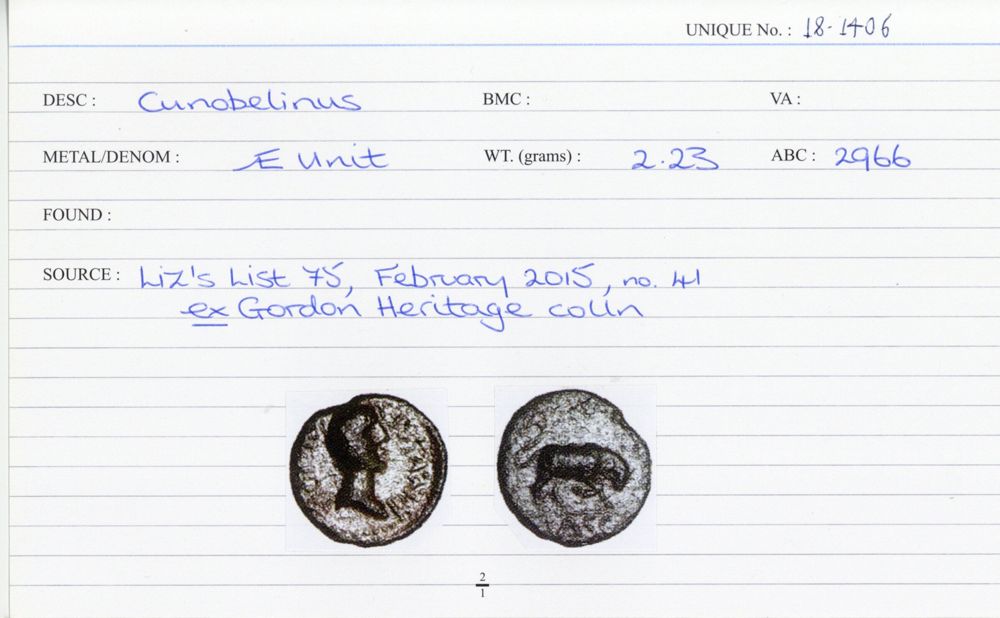 UNIQUE No. : 18-1406
DESC : Cunobelinus BMC : VA :
METAL/DENOM : Æ Unit WT. (grams) : 2.23 ABC : 2966
FOUND :
SOURCE : Liz's List 75, February 2015, no. 41
ex Gordon Heritage colln
2
1